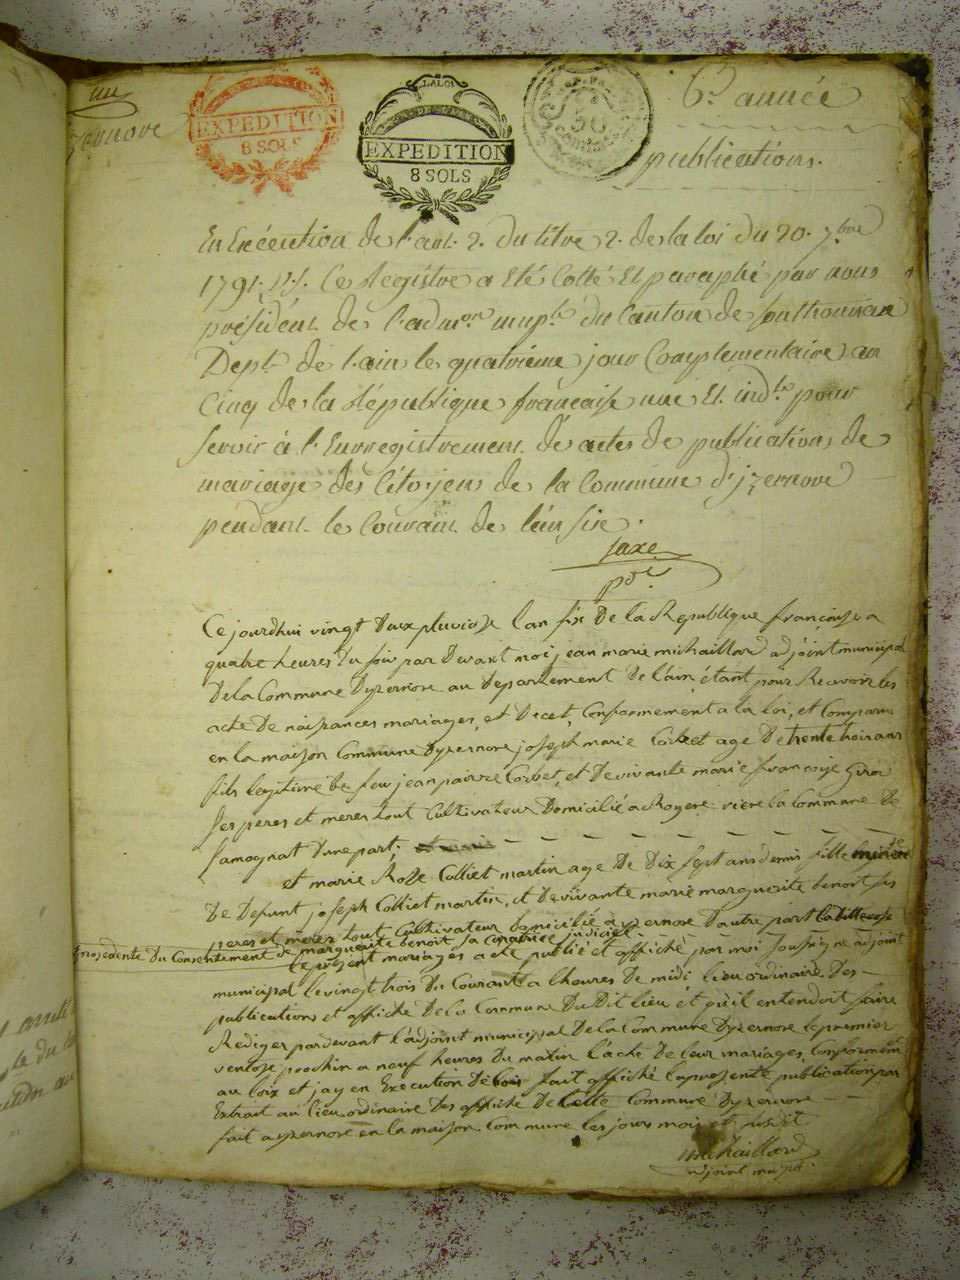 un
izernove
EXPEDITION
8 SOLS
LA LOI
EXPEDITION
8 SOLS
50
6e année
publications.
En Exécution de l'art. 2. du titre 2. de la loi du 20. 7bre
1791. Ce Registre a Eté Cotté Et paraphé par nous
président de l'admon muple du Canton de Sonthonnax
Dept de l'ain le quatrieme jour Complementaire an
Cinq de la République francaise une Et indle pour
servir à l'Enregistrement dés actes de publications de
mariage des Citoyens de la Commune d'izernove
pendant le Courant de l'an six.
jaxe
pdt
Ce jourdhui vingt deux pluviose lan six De la Republique francoise a
quatre heures du soir par Devant moi jean marie michaillard adjoint municipal
De la Commune Dyzernore au Departement De lain étant pour Recevoir les
acte De naissances mariages, et Decet, Conformement a la loi, et Comparu
en la maison Commune Dyzernore joseph marie Corbet age De trente trois ans
fils legitime De feu jean pairre Corbet et De vivante marie francoise Girod
ses peres et meres tout Cultivateur Domicilié a Royere riere la Commune De
samognat Dune part;
et marie Rose Colliet martin age De Dix sept ans demis fille
De Defunt joseph Colliet martin, et De vivante marie marguerite benoit ses
peres et meres tout Cultivateur Domicilié a yzernore Dautre part la ditte
du Consentement de marguerite benoit sa Curatrice judiciel.
le présent mariages a eté publié et affiché par moi soussigne adjoint
municipal le vingt trois du Courant a lheures de midi lieu ordinaire Des
publications et affiche De la Commune Du Dit lieu et quil entendoit faire
Rediger par devant l'adjoint municipal De la Commune Dyzernore le premier
ventose prochin a neuf heures Du matin l'acte De leur mariages, Conformem
au loix et jay en Execution fait affiché la presente publication par
Extrait au lieu ordinaire Des affiche De Cette Commune Dyzernore
fait a yzernore en la maison Commune les jours mois et susdit
michaillard
adjoint mupal